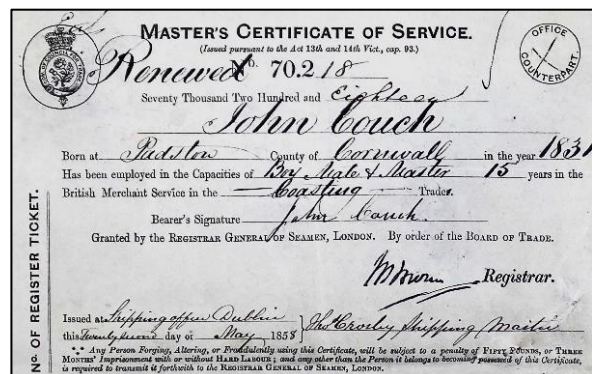 MASTER'S CERTIFICATE OF SERVICE.
(Issued pursuant to the Act 13th and 14th Vict., cap. 93.)
OFFICE COUNTERPART.
Renewed No. 70.218
Seventy Thousand Two Hundred and Eighteen
John Couch
Born at Padstow County of Cornwall in the year 1831
Has been employed in the Capacities of Boy Mate & Master 15 years in the
British Merchant Service in the Coasting Trade.
Bearer's Signature John Couch.
Granted by the REGISTRAR GENERAL OF SEAMEN, LONDON. By order of the BOARD OF TRADE.
Registrar.
Issued at Shipping office Dublin
this Twenty second day of May 1858 Thos Crosby Shipping Master
*** Any Person Forging, Altering, or Fraudulently using this Certificate, will be subject to a penalty of FIFTY POUNDS, or THREE
MONTHS' Imprisonment with or without HARD LABOUR; and any other than the Person it belongs to becoming possessed of this Certificate,
is required to transmit it forthwith to the REGISTRAR GENERAL OF SEAMEN, LONDON.
No. OF REGISTER TICKET.